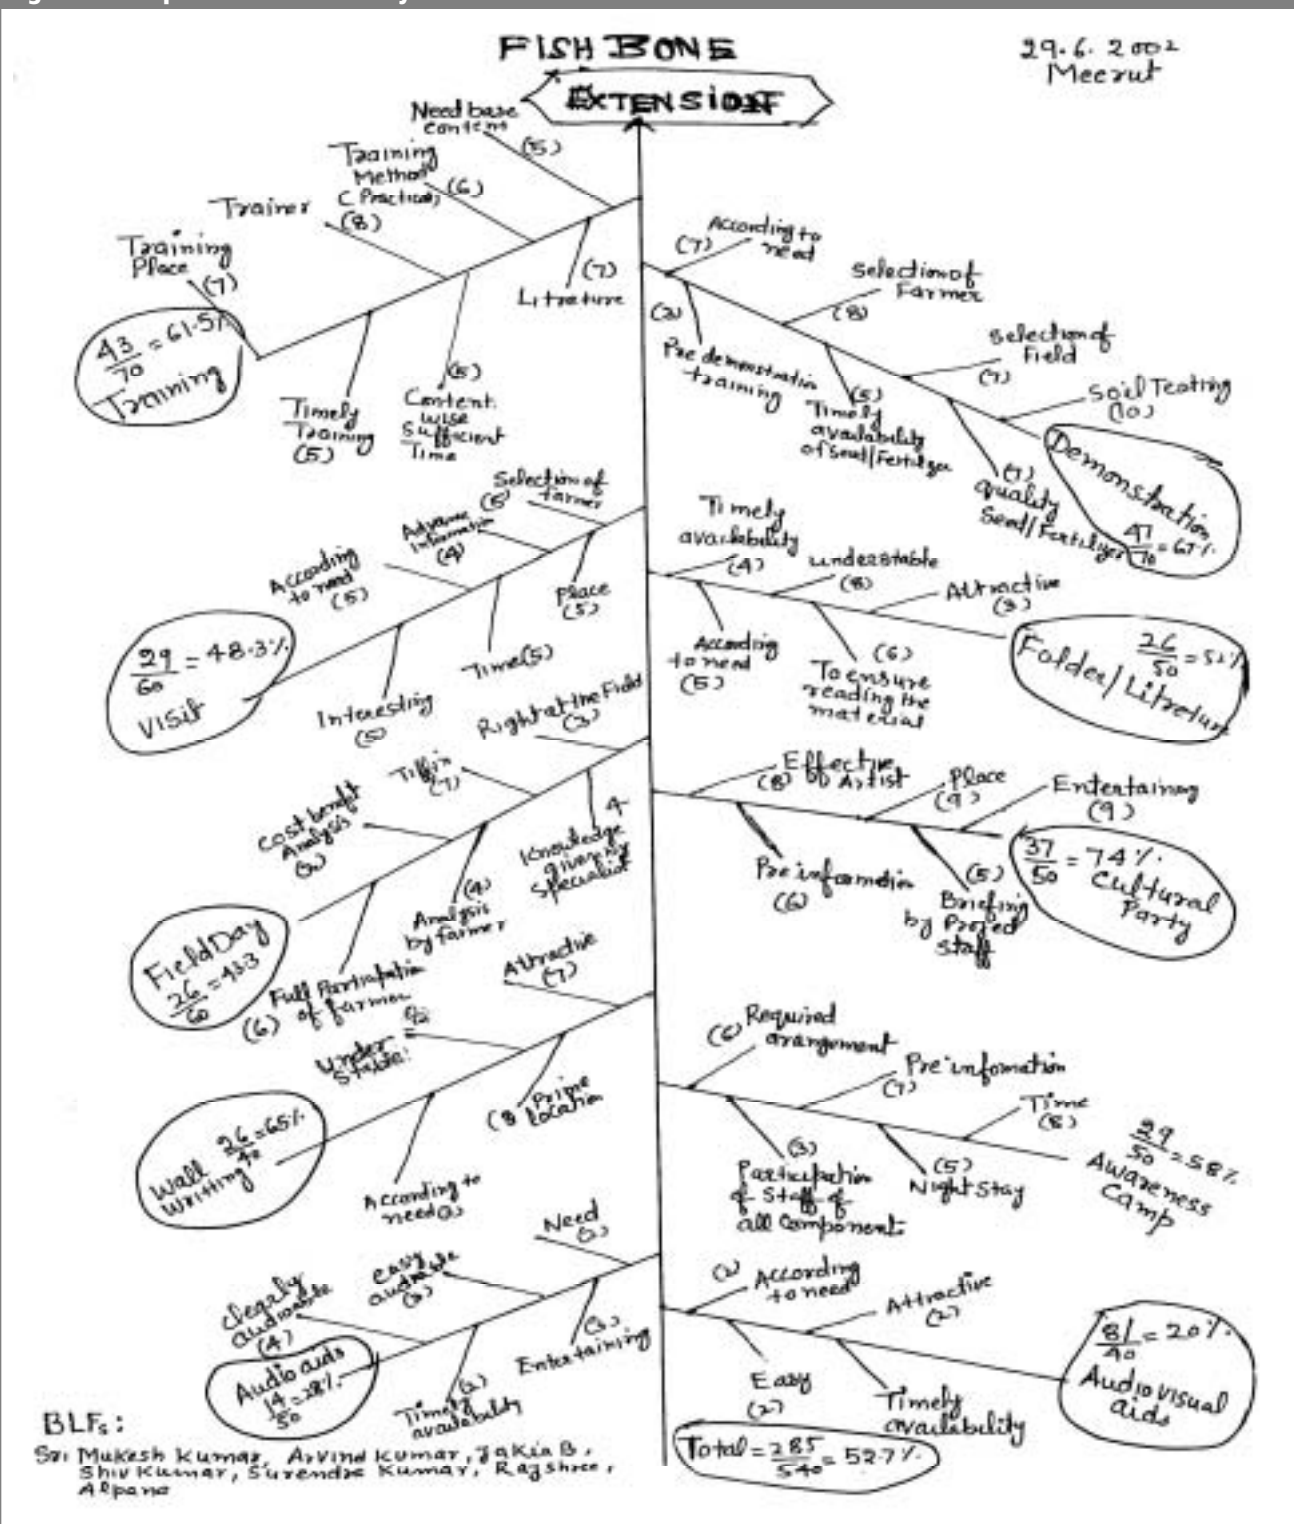 FISH BONE
29.6.2002
Meerut
EXTENSION
Need base
content
(5)
Training
Method
(Practical)
(6)
Trainer
(8)
Training
Place
(7)
Litreture
(7)
43/70 = 61.5%
Training
Timely
Training
(5)
(5)
Content
wise
Sufficient
Time
According to
need
(7)
Selection of
Farmer
(8)
Selection of
Field
(7)
Soil Testing
(10)
Pre demonstration
training
(5)
Timely
availability
of Seed/Fertilizer
quality
Seed/Fertilizer
Demonstration
47/70 = 67%
Selection of
farmer
(5)
Advance
Information
(4)
According
to need
(5)
Place
(5)
Time(5)
Interesting
(5)
29/60 = 48.3%
Visit
Timely
availability
(4)
understable
(8)
Attractive
(3)
According
to need
(5)
(6)
To ensure
reading the
material
26/50 = 52%
Folder/Litreture
Right at the Field
(3)
Tiffin
(7)
Cost benefit
Analysis
4
Knowledge
giver by
specialist
(4)
Analysis
by farmer
Full Participation
of farmer
(6)
Field Day
26/60 = 43.3
Effective
Artist
(8)
Place
(9)
Entertaining
(9)
Pre information
(6)
(5)
Briefing
by Project
Staff
37/50 = 74%
Cultural
Party
Attractive
(7)
Under
Stable
Prime
Location
(8)
According to
need
Wall
Writting
26/40 = 65%
Required
arangement
(6)
Pre infomation
(7)
Time
(8)
(3)
Participation
of Staff of
all Component
(5)
Night Stay
29/50 = 58%
Awareness
Camp
Need
easy
audiable
clearly
audiable
(4)
Entertaining
Timely
availability
Audio aids
14/50 = 28%
According
to need
Attractive
(2)
Easy
(2)
Timely
availability
8/40 = 20%
Audio visual
aids
Total = 285/540 = 52.7%
BLFs:
Sri Mukesh Kumar, Arvind Kumar, Jakia B,
Shiv Kumar, Surendra Kumar, Rajshree,
Alpana